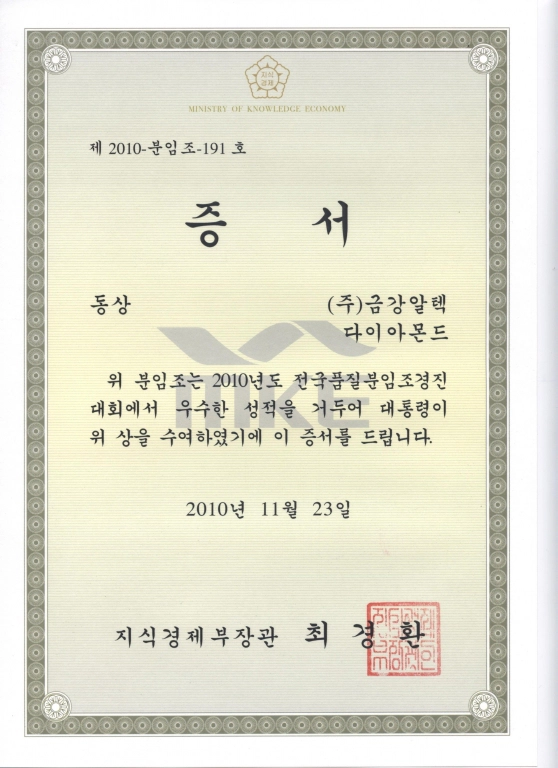 지식
경제
MINISTRY OF KNOWLEDGE ECONOMY
제 2010-분임조-191 호
증 서
동상 (주)금강알텍
다이아몬드
MKE
위 분임조는 2010년도 전국품질분임조경진
대회에서 우수한 성적을 거두어 대통령이
위 상을 수여하였기에 이 증서를 드립니다.
2010년 11월 23일
지식경제부장관 최 경 환